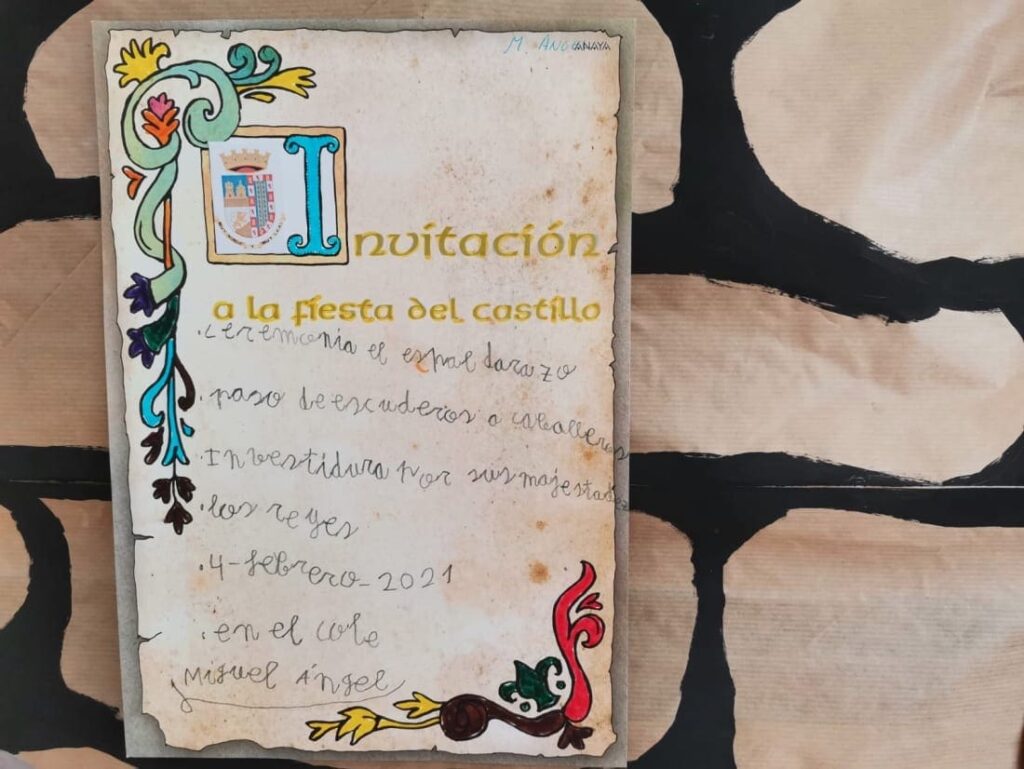 M. Áng ANAYA
Invitación
a la fiesta del castillo
.Ceremonia el espaldarazo
.paso de escuderos a caballeros
Investidura por sus majestades
.los reyes
.4-febrero-2021
.en el cole
Miguel Ángel